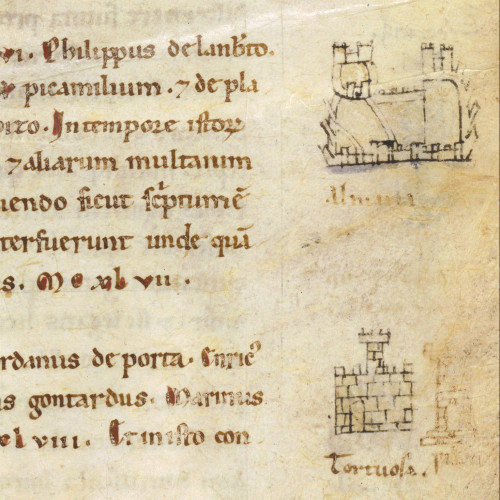 Philippus de lanb̄to.
picamilium. ⁊ de pla
In tempore istoꝝ
⁊ aliarum multarum
uendo sicut sc̄ptum ē
terfuerunt unde quā
s. M c xl vii.
rdanus de porta. Enric⁹
s gontardus. Marinus
xl viii. In isto con
Almaria
Tortuose.